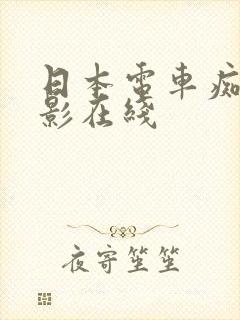 日本電車痴
影在綫
夜寄笙笙